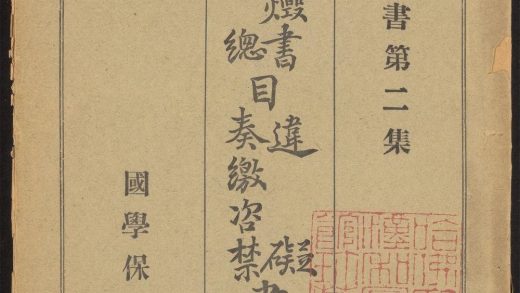 書第二集
燬書
總目
違礙
奏繳咨禁
國學保
哈佛
漢和